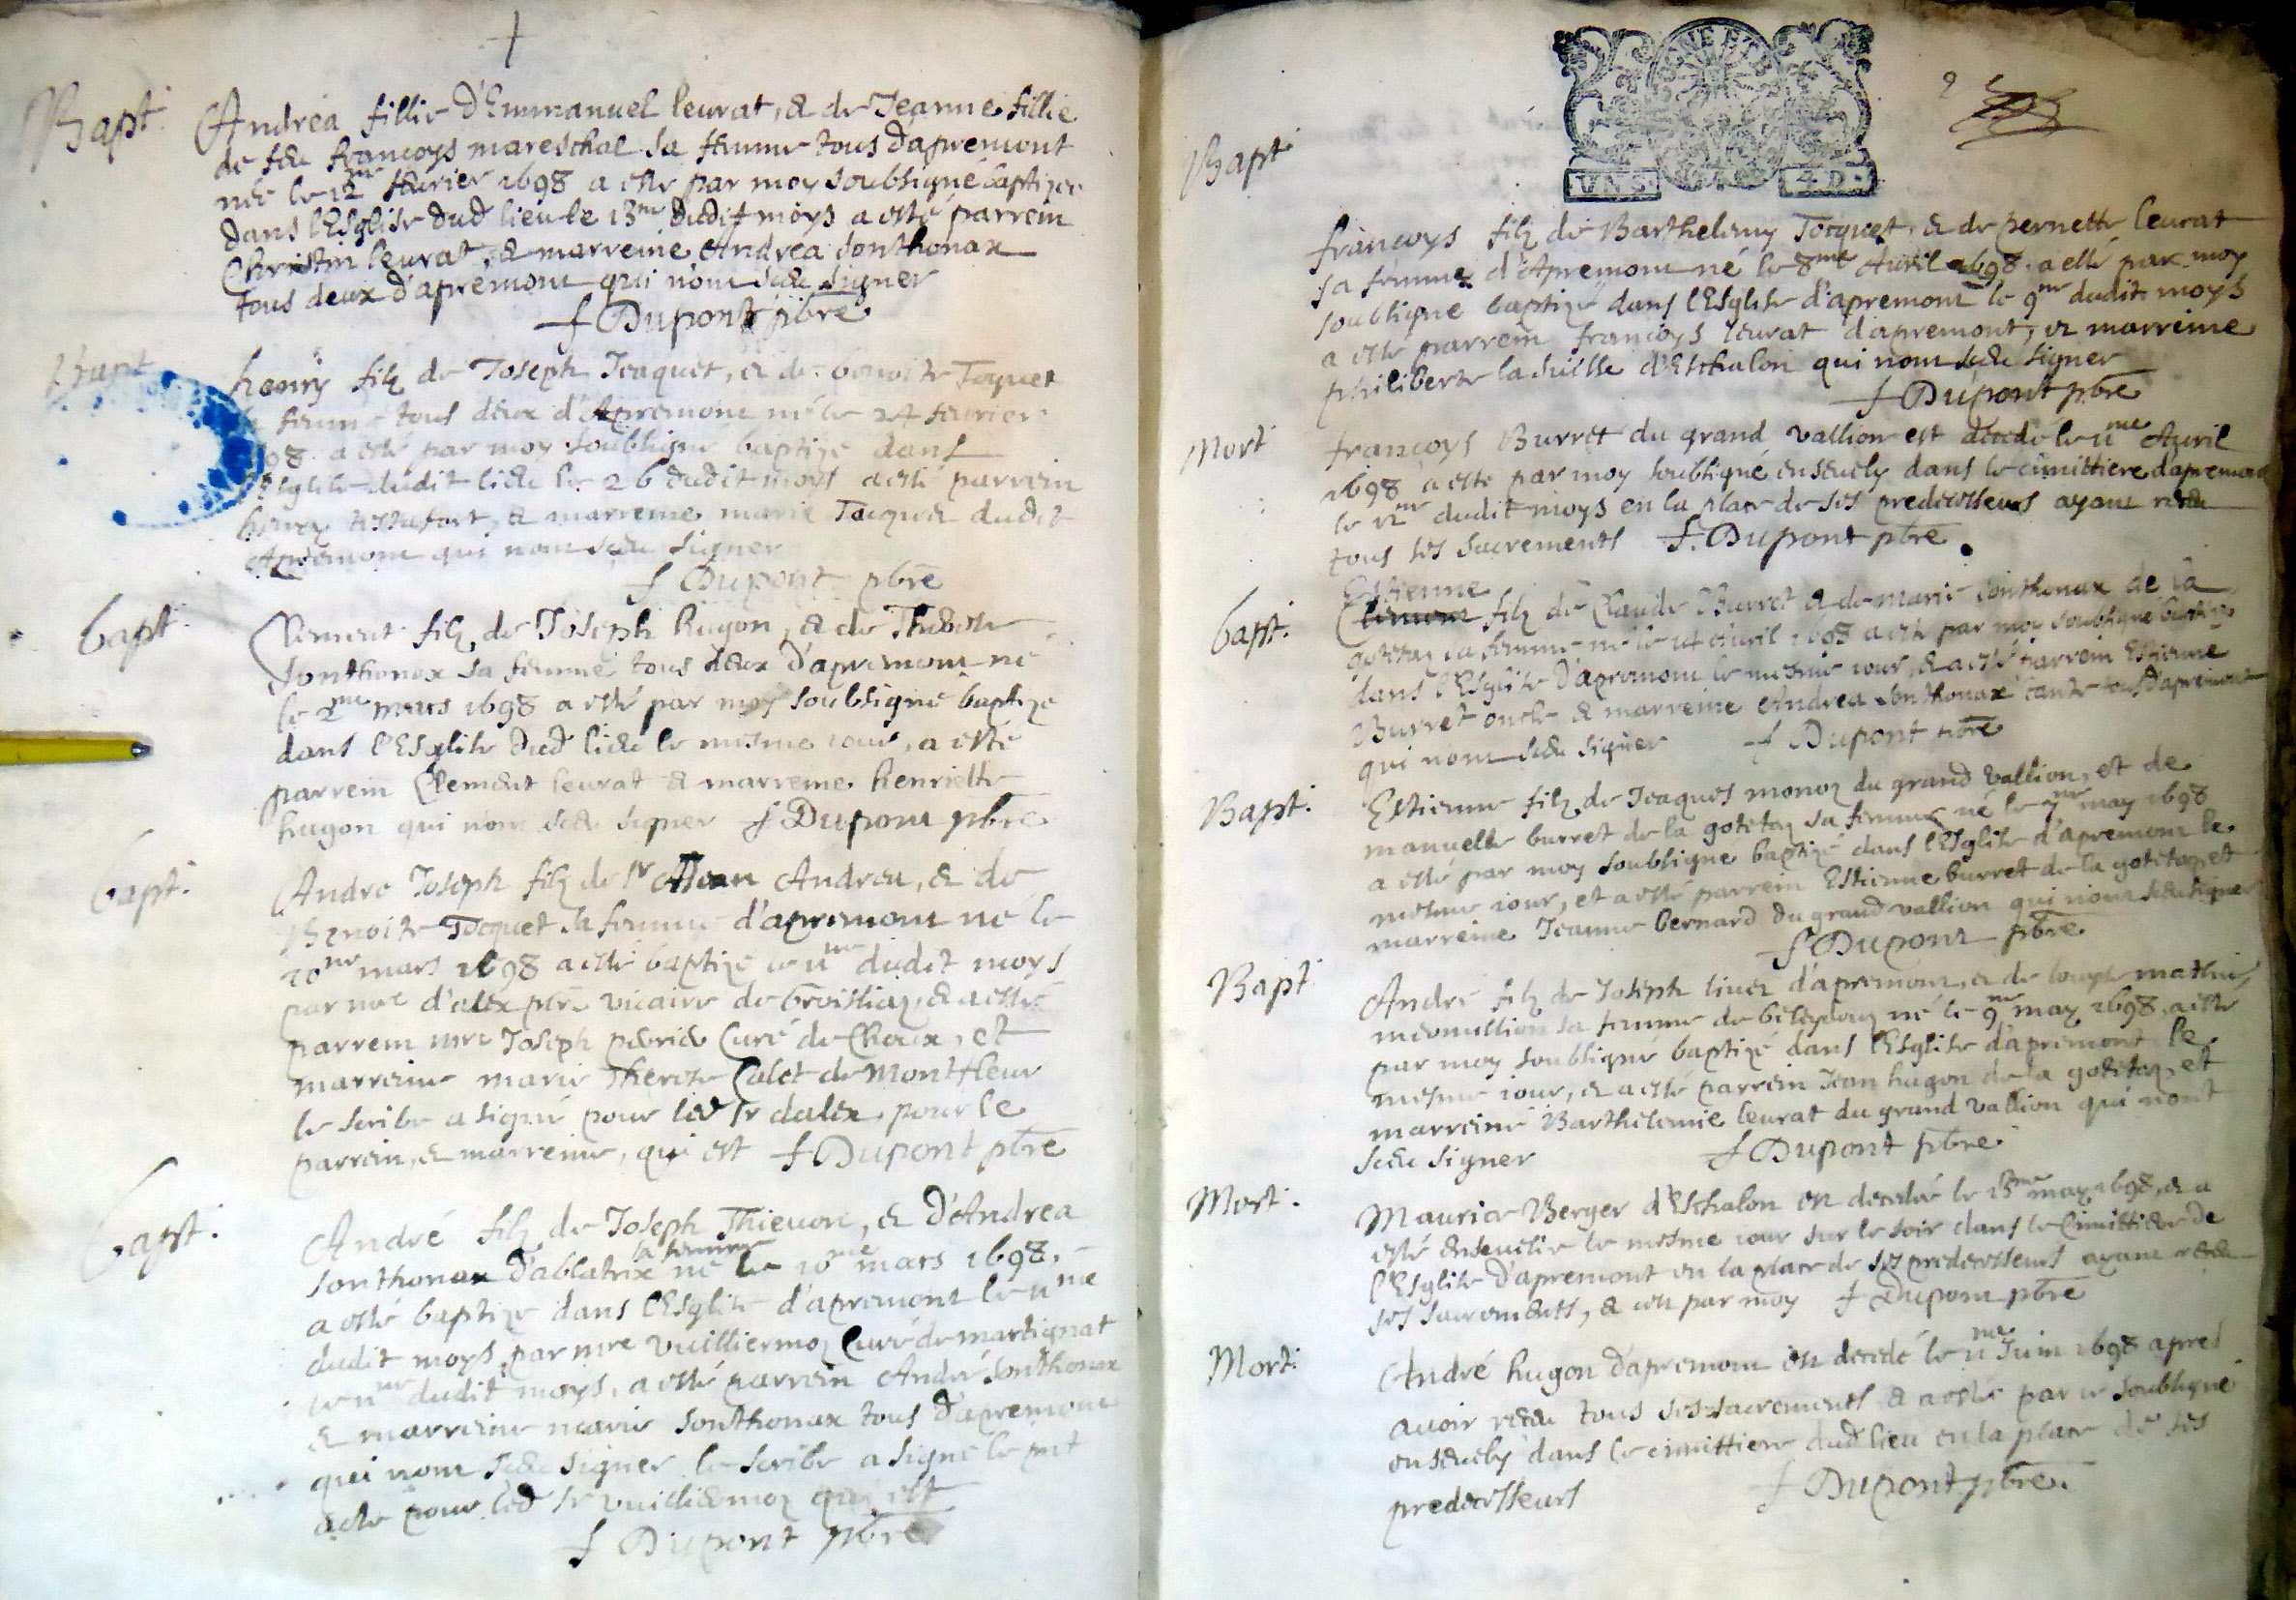 Bapt.
Andrea fillie d'Emmanuel leurat, & de Jeanne fillie
de feu francoys mareschal sa femme tous d'apremont
née le 12me feurier 1698 a esté par moy soubsigné baptizée
dans l'Esglise dud lieu le 13me dudit moys a esté parrein
Christin leurat, & marreine Andrea sonthonax
tous deux d'apremont qui n'ont sceu signer
f Dupont pbre
Bapt
henry filz de Joseph Jcaquet, & de benoite Toquet
femme tous deux d'Apremont né le 24 feurier
98 a esté par moy soubsigné baptizé dans
Esglise dudit lieu le 26 dudit moys a esté parrein
henry & marreine marie Tacquet dudit
Apremont qui n'ont sceu signer
f Dupont pbre
bapt.
Clement filz de Joseph hugon, & de Thibode
Sonthonax sa femme tous deux d'apremont né
le 2me mars 1698 a esté par moy soubsigné baptizé
dans l'Esglise dud lieu le mesme iour, a esté
parrein Clement leurat & marreine henriette
hugon qui n'ont sceu signer f Dupont pbre
bapt.
Andre Joseph filz de sr Andreu, & de
Benoite Tocquet sa femme d'apremont né le
10me mars 1698 a esté baptizé le 11me dudit moys
par d'alex ptre vicaire de & a esté
parrein mre Joseph Curé de Choux, et
marreine marie Therese Calet de Montfleur
le scribe a signé pour led sr dalex pour le
parrein, & marreine, qui est f Dupont pbre
bapt.
André filz de Joseph Thieuon, & d'Andrea
sonthonax d'ablatrix sa femme né le 10me mars 1698,
a esté baptizé dans l'Esglise d'apremont le 11me
dudit moys par mre vuilliermoz Curé de martignat
le 11me dudit moys, a esté parrein André sonthonax
& marreine marie sonthonax tous d'apremont
qui n'ont sceu signer le scribe a signé le pnt
acte pour led sr vuilliermoz qui est
f Dupont pbre
2
VN S. 4 D.
Bapt
francoys filz de Barthelemy Tocquet, & de pernette leurat
sa femme d'Apremont né le 8me Auril 1698. a esté par moy
soubsigné baptizé dans l'Esglise d'apremont le 9me dudit moys
a esté parrein francoys leurat d'apremont, et marreine
philiberte d'Eschalon qui n'ont sceu signer
f Dupont pbre
Mort
francoys Burret du grand vallion est decedé le 11me Auril
1698 a esté par moy soubsigné enseuely dans le cimittiere dapremont
le 12me dudit moys en la place de ses predecesseurs ayant receu
tous ses sacrements f. Dupont pbre.
bapt.
Estienne
Clement filz de Claude Burret & de marie sonthonax de la
gotetaz sa femme né le 14 auril 1698 a esté par moy soubsigné baptizé
dans l'Esglise d'apremont le mesme iour, & a esté parrein Estienne
Burret oncle & marreine Andrea sonthonax tante tous d'apremont
qui n'ont sceu signer f Dupont pbre
Bapt.
Estienne filz de Jcaques monoz du grand vallion, et de
manuelle burret de la gotetaz sa femme né le 7me may 1698
a esté par moy soubsigné baptizé dans l'Esglise d'apremont le
mesme iour, et a esté parrein Estienne burret de la gotetaz et
marreine Jeanne bernard du grand vallion qui n'ont sceu signer
f Dupont pbre
Bapt
André filz de Joseph d'apremont, & de
sa femme de né le 9me may 1698. a esté
par moy soubsigné baptizé dans l'Esglise d'apremont le
mesme iour, & a esté parrein Jean hugon de la gotetaz et
marreine Barthelemie leurat du grand vallion qui n'ont
sceu signer f Dupont pbre
Mort.
Maurice Berger d'Eschalon est decedé le 13me may 1698, & a
esté enseuelie le mesme iour sur le soir dans le Cimittiere de
l'Esglise d'apremont en la place de ses predecesseurs ayant receu
ses sacrements, & ceu par moy f Dupont pbre
Mort.
André hugon d'apremont est decedé le 11me Juin 1698 apres
auoir receu tous ses sacrements & a esté par le soubsigné
enseuely dans le cimittiere dud lieu en la place de ses
predecesseurs f Dupont pbre.